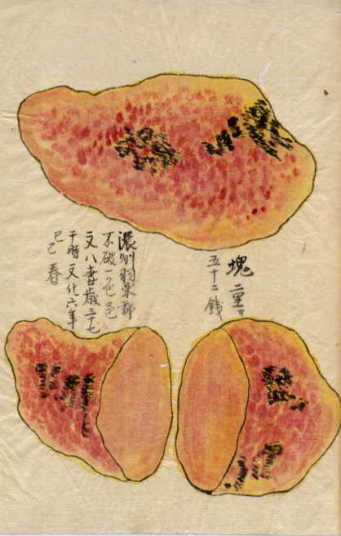 塊 重サ
五十二錢
濃州羽栗郡
不破一色邑
又八妻歳二十七
于時文化六年
己巳春